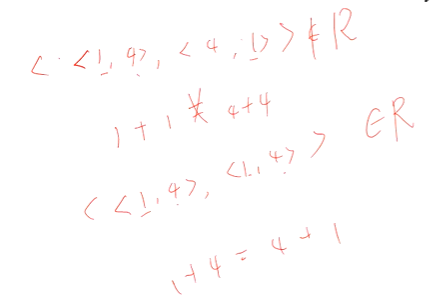 < <1, 4>, <4, 1> > ∉ R
1 + 1 ≠ 4 + 4
< <1, 4>, <1, 4> > ∈ R
1 + 4 = 4 + 1